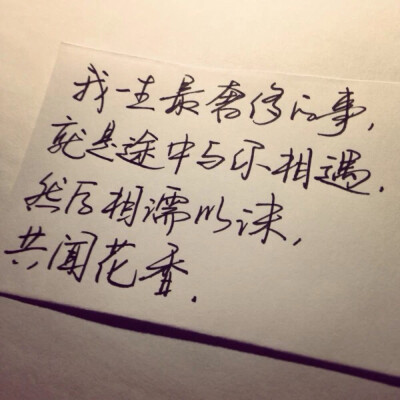 我一生最奢侈的事,
就是途中与你相遇.
然后相濡以沫,
共闻花香.